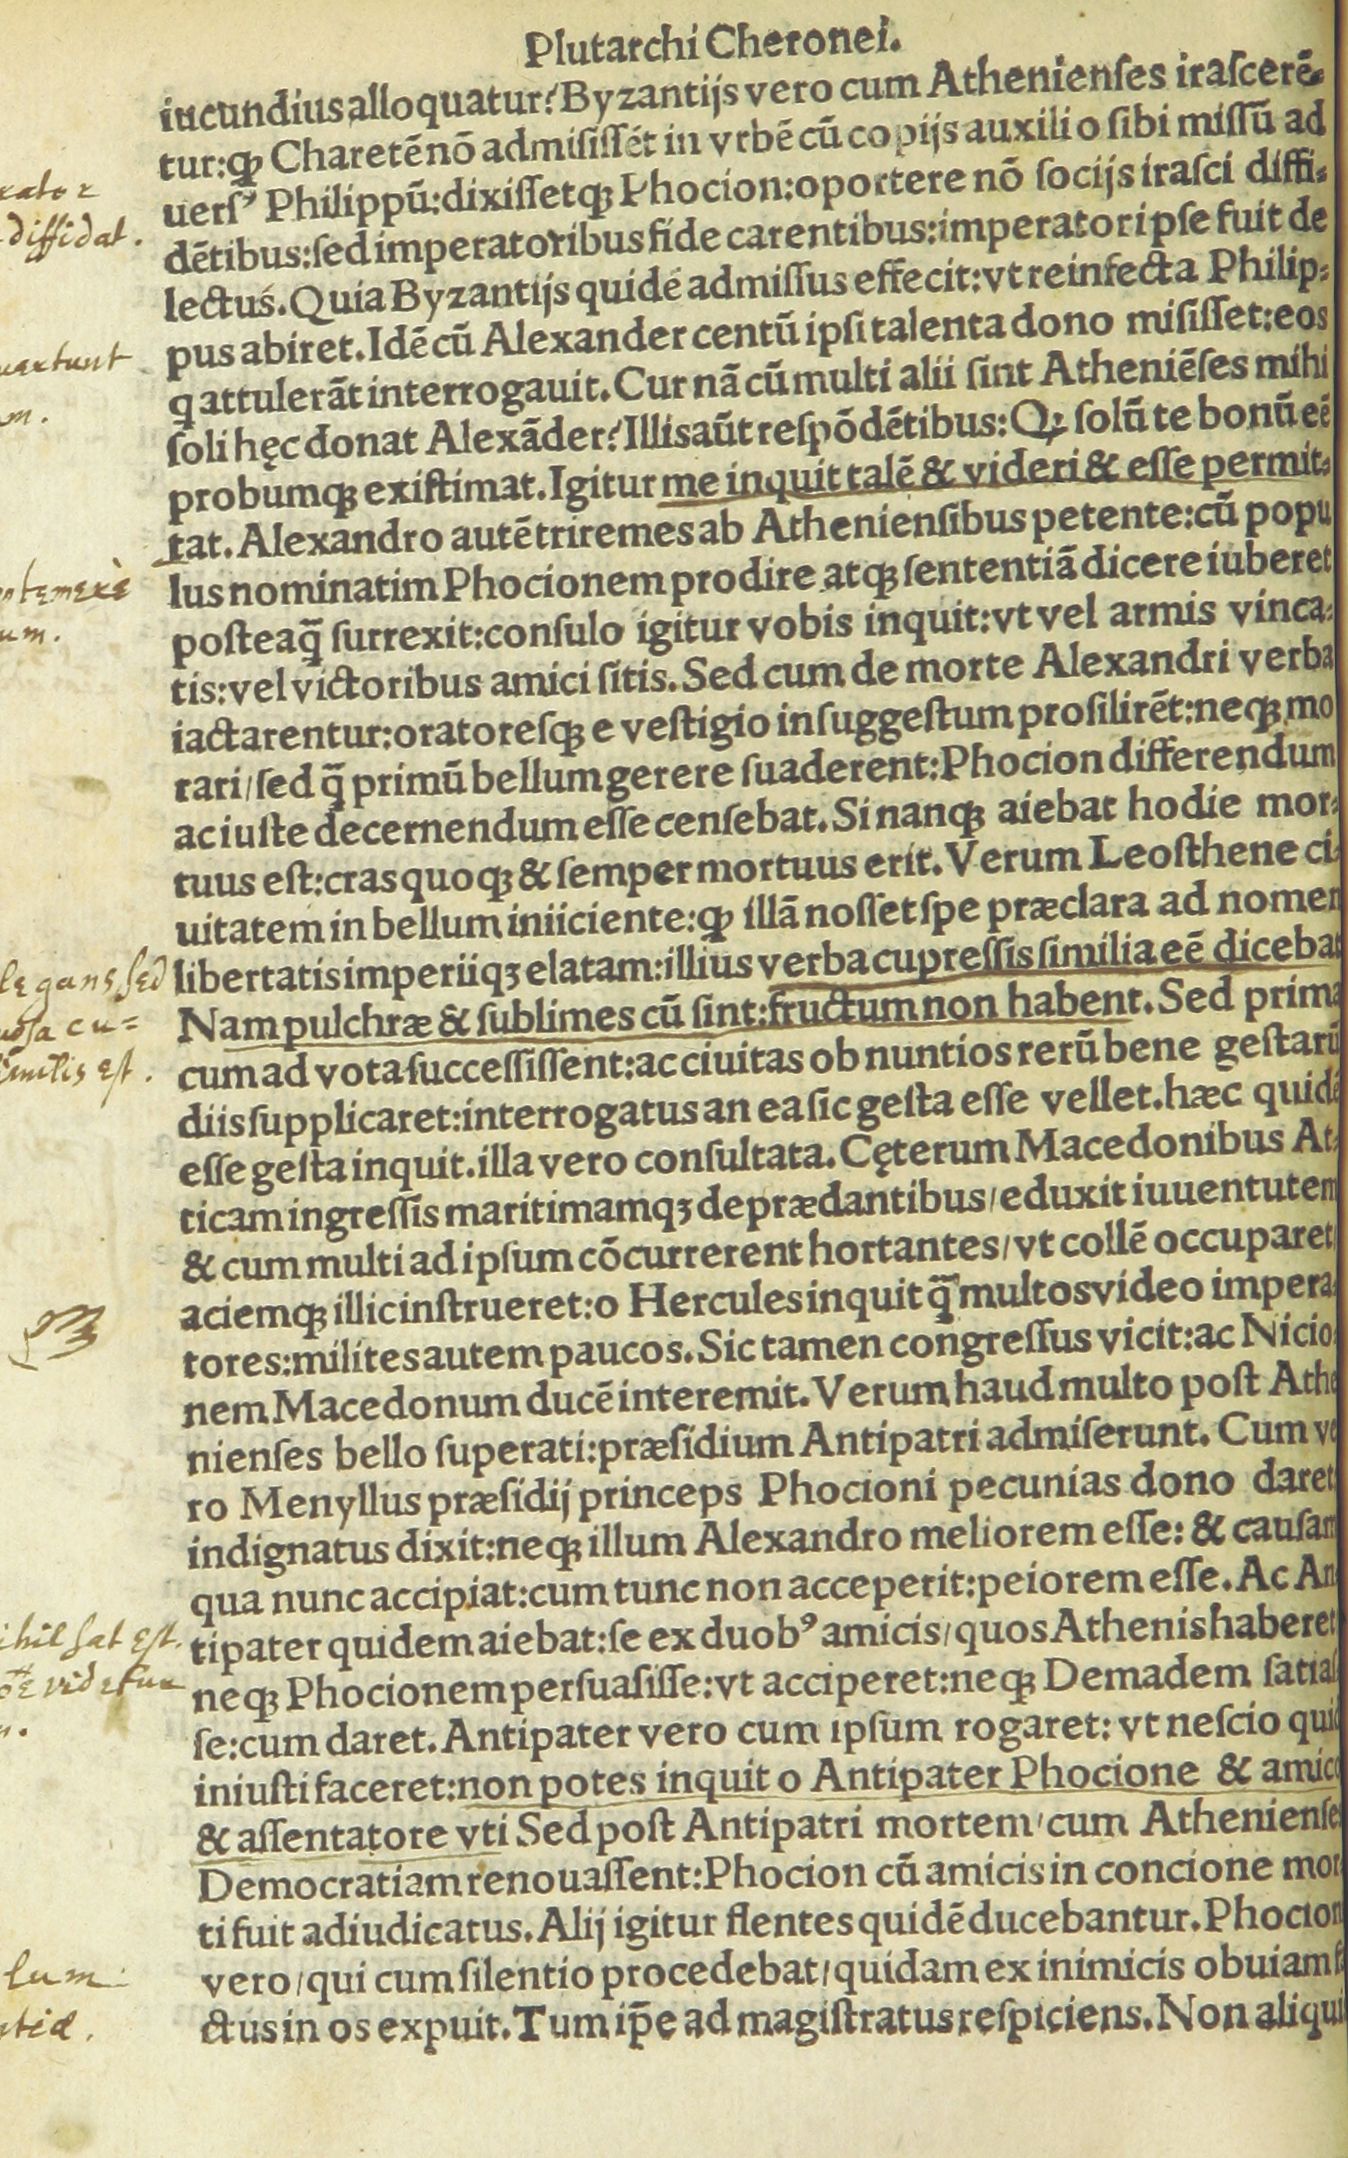 Plutarchi Cheronei.
iucundius alloquatur? Byzantijs vero cum Athenienses irascerē-
tur: ꝙ Charetē nō admisissēt in vrbē cū copijs auxilio sibi missū ad
uersꝰ Philippū: dixissetqꝫ Phocion: oportere nō socijs irasci diffi-
dētibus: sed imperatoribus fide carentibus: imperator ipse fuit de
lectus. Quia Byzantijs quidē admissus effecit: vt re infecta Philip-
pus abiret. Idē cū Alexander centū ipsi talenta dono misisset: eos
q attulerāt interrogauit. Cur nā cū multi alii sint Atheniēses mihi
soli hęc donat Alexāder? Illis aūt respōdētibus: Qꝫ solū te bonū eē
probumqꝫ existimat. Igitur me inquit talē & videri & esse permit-
tat. Alexandro autē triremes ab Atheniensibus petente: cū popu
lus nominatim Phocionem prodire atqꝫ sententiā dicere iuberet
posteaq̄ surrexit: consulo igitur vobis inquit: vt vel armis vinca-
tis: vel victoribus amici sitis. Sed cum de morte Alexandri verba
iactarentur: oratoresqꝫ e vestigio in suggestum prosilirēt: neqꝫ mo
rari/ sed q̄ primū bellum gerere suaderent: Phocion differendum
ac iuste decernendum esse censebat. Si nanqꝫ aiebat hodie mor-
tuus est: cras quoqꝫ & semper mortuus erit. Verum Leosthene ci-
uitatem in bellum iniiciente: ꝙ illā nosset spe præclara ad nomen
libertatis imperiiqꝫ elatam: illius verba cupressis similia eē dicebat
Nam pulchræ & sublimes cū sint: fructum non habent. Sed prima
cum ad vota successissent: ac ciuitas ob nuntios rerū bene gestarū
diis supplicaret: interrogatus an ea sic gesta esse vellet. hæc quidē
esse gesta inquit. illa vero consultata. Cęterum Macedonibus At-
ticam ingressis maritimamqꝫ deprædantibus/ eduxit iuuentutem
& cum multi ad ipsum cōcurrerent hortantes/ vt collē occuparet
aciemqꝫ illic instrueret: o Hercules inquit q̄ multos video impera-
tores: milites autem paucos. Sic tamen congressus vicit: ac Nicio-
nem Macedonum ducē interemit. Verum haud multo post Athe
nienses bello superati: præsidium Antipatri admiserunt. Cum ve
ro Menyllus præsidij princeps Phocioni pecunias dono daret
indignatus dixit: neqꝫ illum Alexandro meliorem esse: & causam
qua nunc accipiat: cum tunc non acceperit: peiorem esse. Ac An
tipater quidem aiebat: se ex duobꝰ amicis/ quos Athenis haberet
neqꝫ Phocionem persuasisse: vt acciperet: neqꝫ Demadem satias
se: cum daret. Antipater vero cum ipsum rogaret: vt nescio quid
iniusti faceret: non potes inquit o Antipater Phocione & amico
& assentatore vti Sed post Antipatri mortem/ cum Athenienses
Democratiam renouassent: Phocion cū amicis in concione mor
ti fuit adiudicatus. Alij igitur flentes quidē ducebantur. Phocion
vero/ qui cum silentio procedebat/ quidam ex inimicis obuiam fa
ctus in os expuit. Tum ip̄e ad magistratus respiciens. Non aliqui
rator
diffidat.
legans sed
similis est.
ihil sat est.
videtur